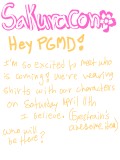 Sakuracon
Hey PGMD!
I'm so excited to meet who
is coming! we're wearing
shirts with our characters
on Saturday April 11th
I believe. (Benjimin's
awesome idea)
who will
be there?